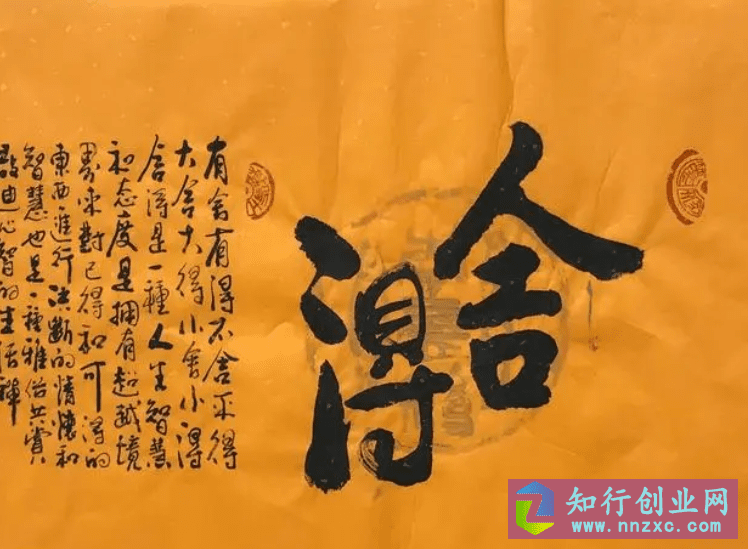 舍得
有舍有得不舍不得
大舍大得小舍小得
舍得是一種人生智慧
和态度是拥有超越境
界来對已得和可得的
東西進行決斷的情懷和
智慧也是一種雅俗共賞
啟迪心智的生活禪
知行创业网
www.nnzxc.com